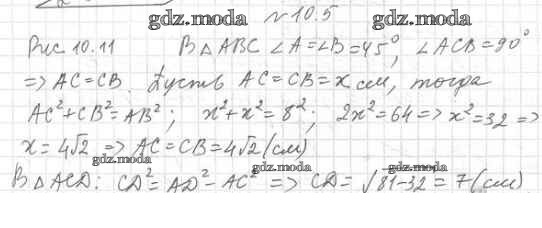 gdz.moda № 10.5 gdz.moda
Рис 10.11 В △ ABC ∠A=∠B=45°, ∠ACB=90°
=> AC=CB. Пусть AC=CB=x см, тогда
AC²+CB²=AB²; x²+x²=8²; 2x²=64 => x²=32 =>
x=4√2 => AC=CB=4√2 (см)
gdz.moda gdz.moda
В △ ACD: CD²=AD²-AC² => CD=√81-32=7 (см)